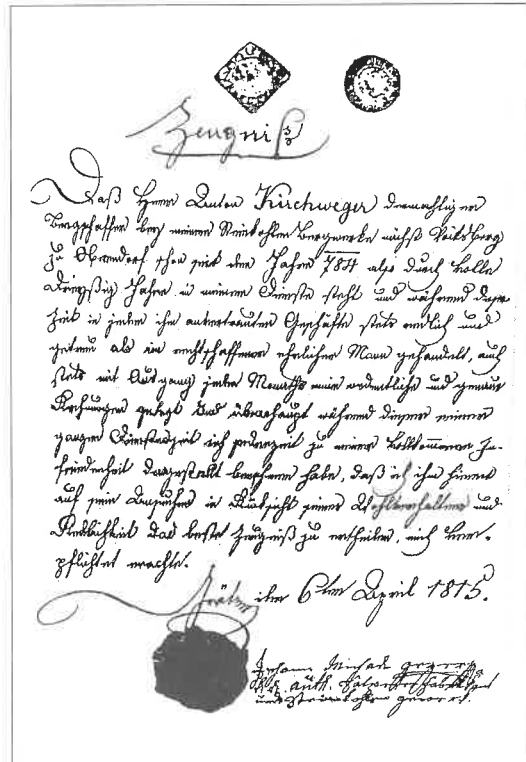 Zeugniß
Daß Herr Anton Kirchweger dermahliger
Bergschaffer bey meinem Steinkohlen Bergwerke nächst Voitsberg
zu Oberndorf schon seit dem Jahre 784 also durch volle
Dreyßig Jahre in meinem Dienste steht und während dieser
Zeit in jedem ihm anvertrauten Geschäfte stets redlich und
getreu als ein rechtschaffener ehrlicher Mann gehandelt, auch
stets mit Ausgang jeden Monaths mir ordentliche und genaue
Rechnungen gelegt und überhaupt während dieser seiner
ganzen Dienstzeit sich jederzeit zu meiner vollkommenen Zu-
friedenheit dargestellt habe, daß ich ihm hiemit
auf sein Ansuchen in Rücksicht seines Wohlverhaltens und
Redlichkeit das beste Zeugniß zu ertheilen, mich ver-
pflichtet erachte.
Grätz den 6ten April 1815.
Johann Michael
k. k.
und Steinkohlen